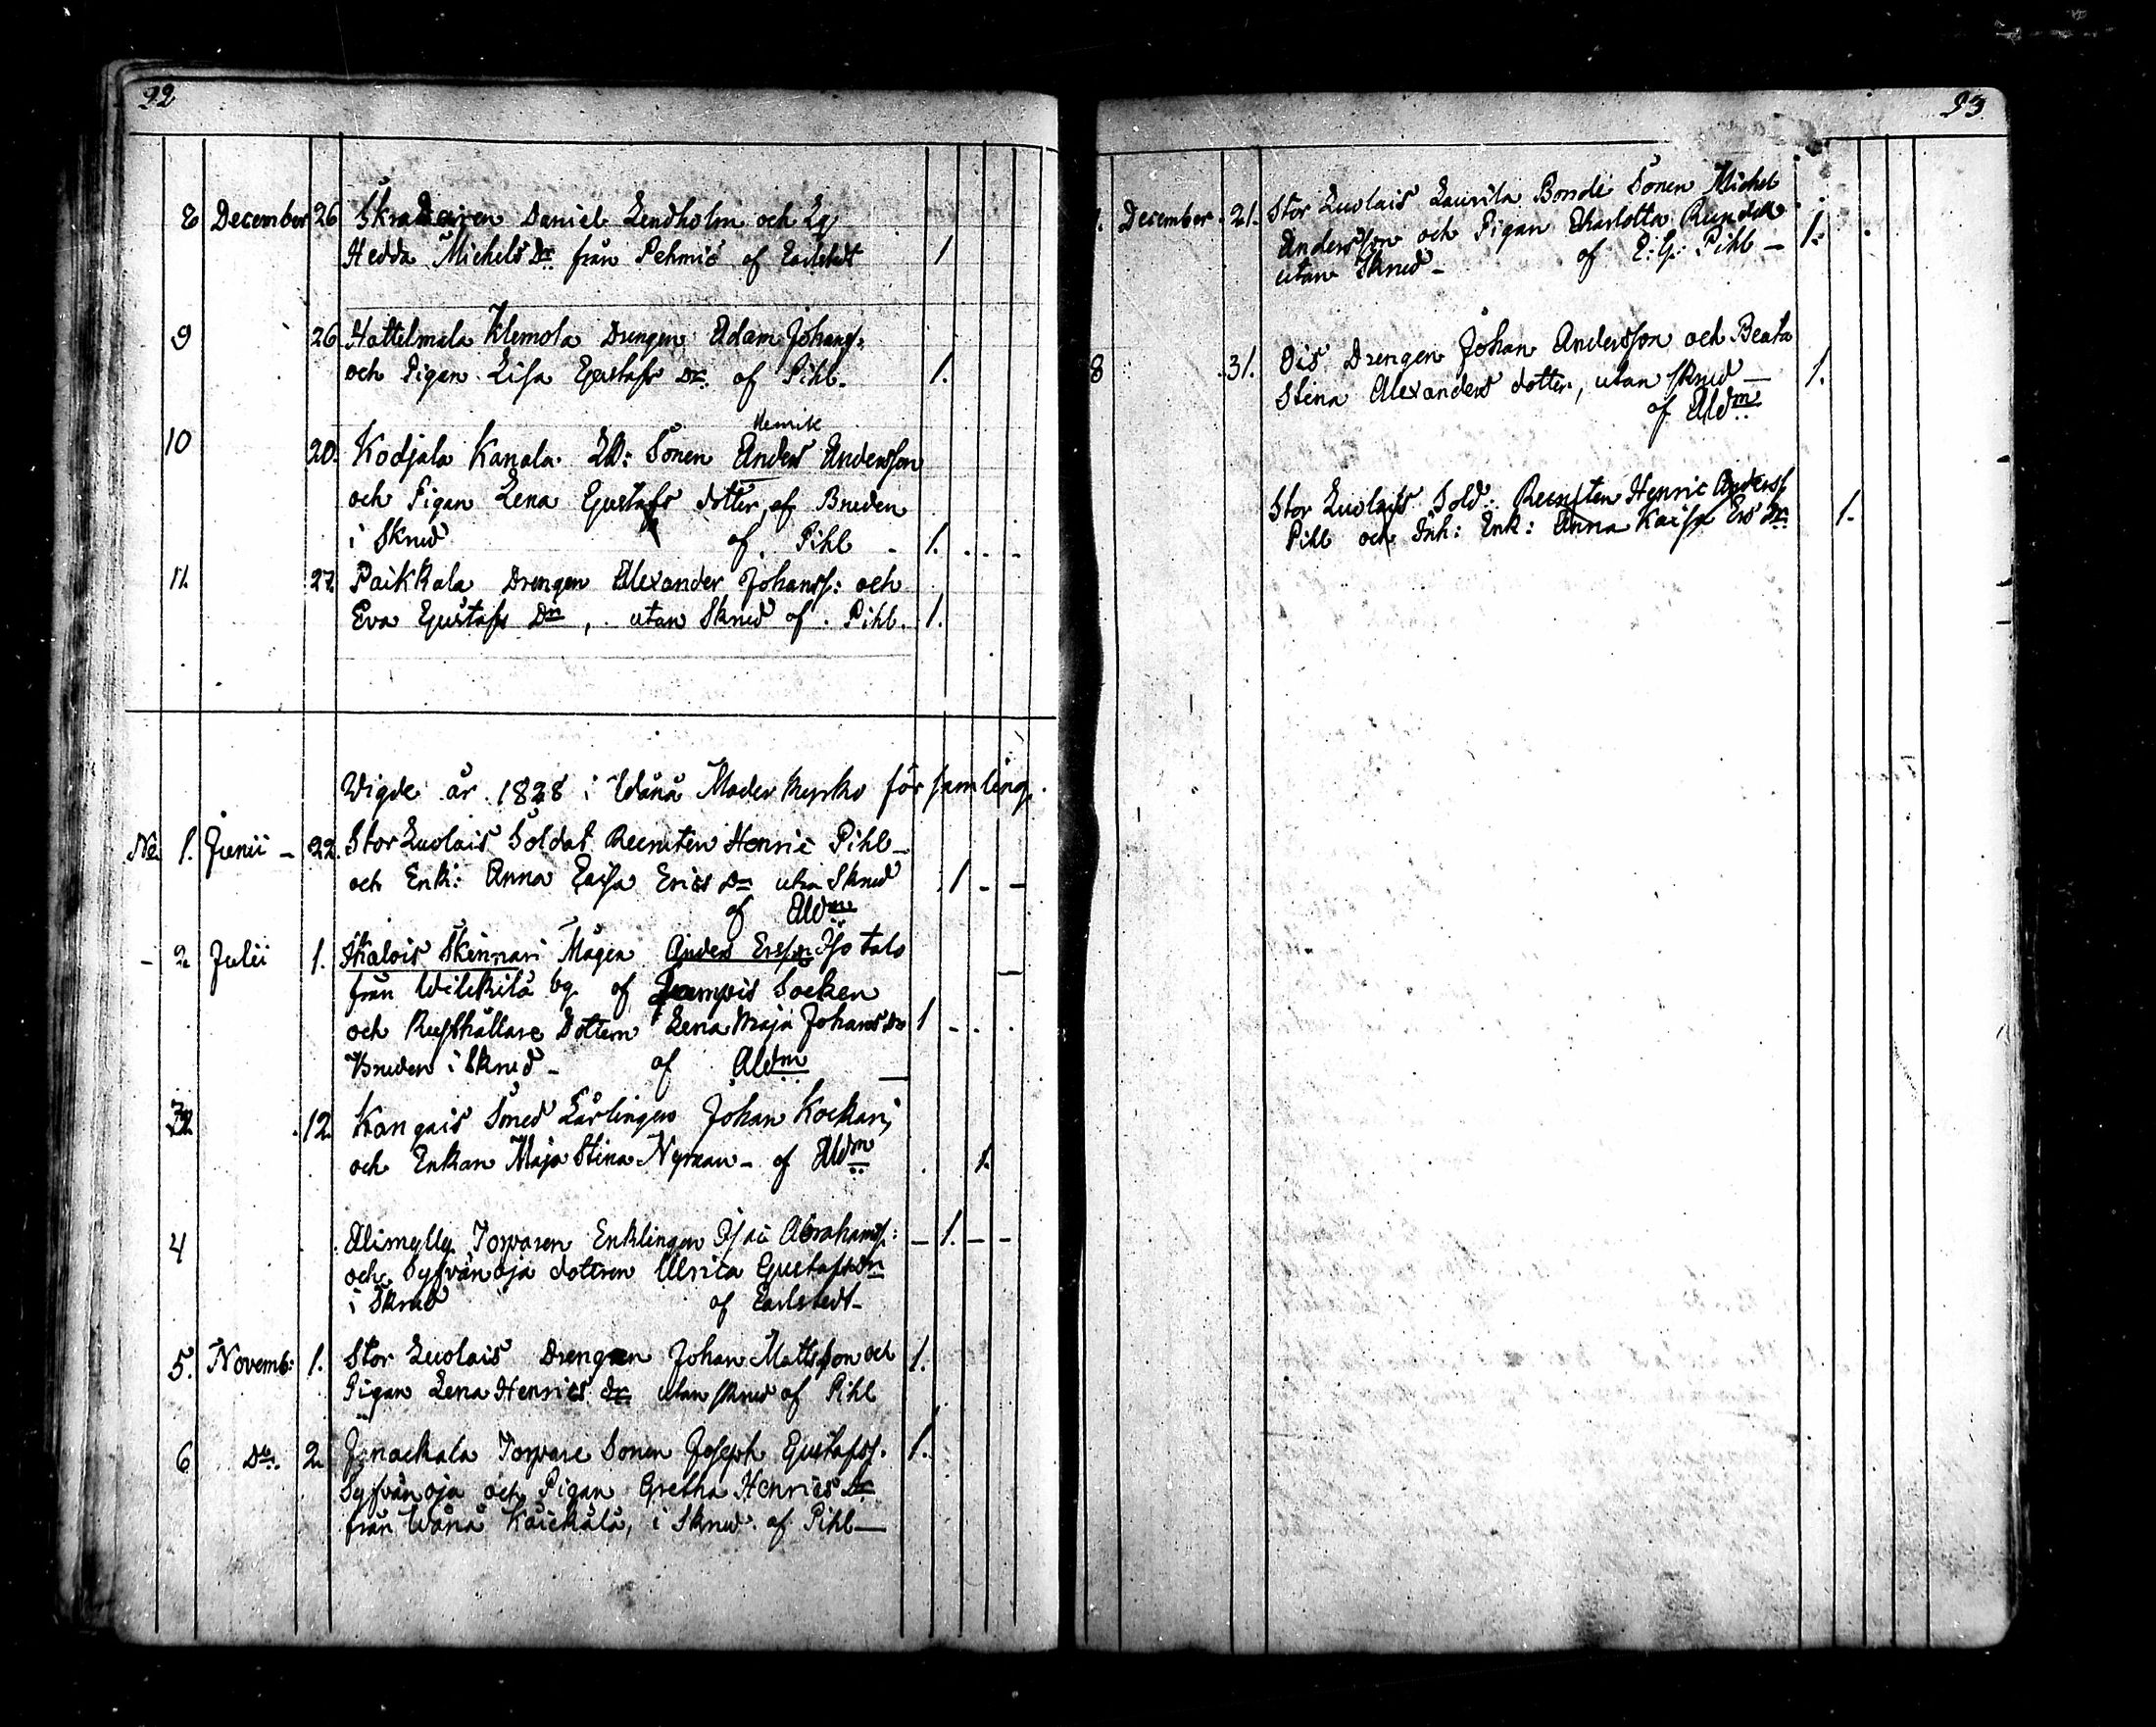 92
8 December 26 Skradaren Daniel Lendholm och Lg
Hedda Michels Dr från Pehmis af Carlstedt 1
9 26 Hattelmala Klemola Drengen Adam Johanss:
och Pigan Lisa Gustafs Dr. af Pihl. 1.
Henric
10 20. Kodjala Kanala Ld: Sonen Anders Andersson
och Pigan Lena Gustafs dotter, af Bruden
i Skrud af Pihl - 1.
11. 27. Paikkala Drengen Alexander Johanss: och
Eva Gustafs Dr, utan Skrud af Pihl. 1.
Wigde år 1828 i Wånå Moder kyrko för samling.
No 1. Junii - 22. Stor Luolais Soldat Recruten Henric Pihl -
och Enk: Anna Caisa Erics Dr utan Skrud 1 - -
af Aldm
- 2 Julii 1. Ikalois Skinnari Mågen Anders Erss: Iso talo
från Wilckilä by af Jampis Socken
och Rusthållare Dottern Lena Maja Johans Dr 1 - . .
Bruden i Skrud - af Aldm
3 12. Kangais Smed Lärlingen Johan Kockari,
och Enkan Maja Stina Nyman - af Aldm 1.
4 Alimylly Torparen Enklingen Isac Abrahams: - 1. - -
och Syfvänoja dottren Ulrica Gustafs Dr
i Skrud af Carlstedt -
5. Novemb: 1. Stor Luolais Drengen Johan Mattsson och 1.
Pigan Lena Henrics Dr utan skrud af Pihl
6 Do. 2 Janackala Torpare Sonen Joseph Gustafss. 1.
Syfvänoja och Pigan Gretha Henrics Dr
från Wånå Kaickala, i Skrud af Pihl —
93
7. December 21. Stor Luolais Laurila Bonde Sonen Michel
Andersson och Pigan Charlotta Rundell
utan Skrud - af E: G: Pihl - 1.
8 31. Ois Drengen Johan Andersson och Beata
Stina Alexanders dotter, utan skrud — 1.
af Aldm
Stor Luolais Sold: Recruten Henric Anderss
Pihl och Inh: Enk: Anna Kaisa Ers Dr. 1.